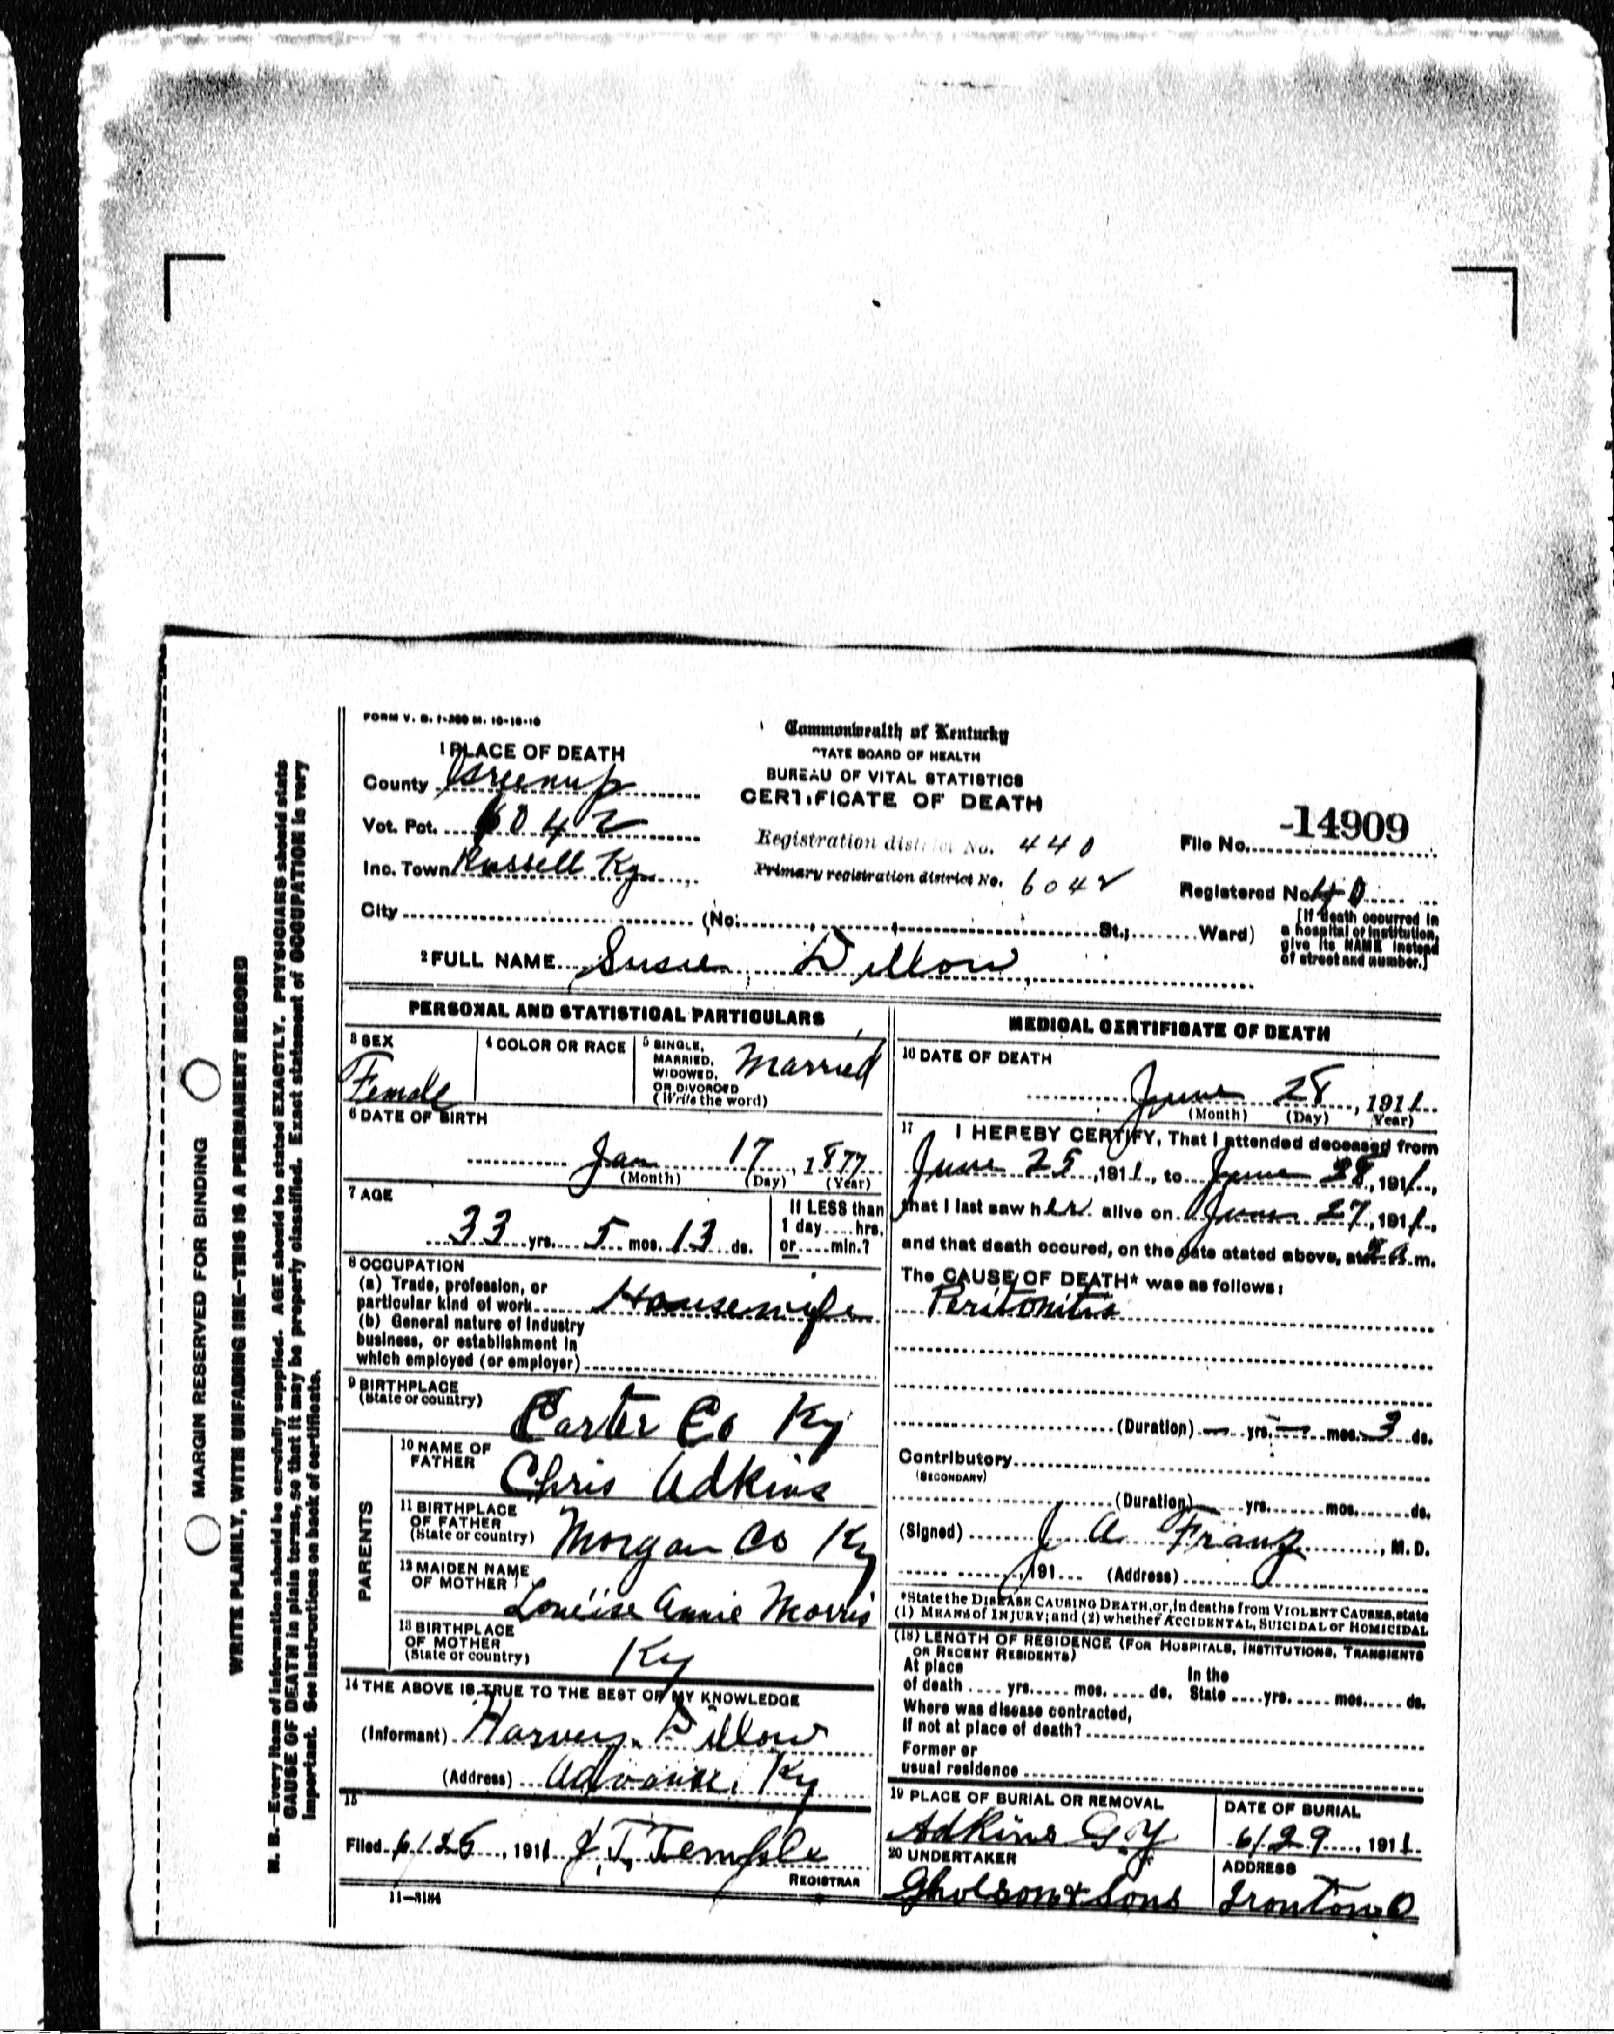 FORM V. S. 1-300 M. 10-10-10
Commonwealth of Kentucky
STATE BOARD OF HEALTH
BUREAU OF VITAL STATISTICS
CERTIFICATE OF DEATH
1 PLACE OF DEATH
County Greenup
Vot. Pct. 6042
Inc. Town Russell Ky
City (No. , St.; Ward)
Registration district No. 440
Primary registration district No. 6042
File No. 14909
Registered No. 40
(If death occurred in
a hospital or institution,
give its NAME instead
of street and number.)
2 FULL NAME Susie Dillow
PERSONAL AND STATISTICAL PARTICULARS
3 SEX
Female
4 COLOR OR RACE
5 SINGLE,
MARRIED,
WIDOWED,
OR DIVORCED
(Write the word)
Married
6 DATE OF BIRTH
Jan 17, 1877
(Month) (Day) (Year)
7 AGE
33 yrs. 5 mos. 13 ds.
If LESS than
1 day ... hrs.
or ... min.?
8 OCCUPATION
(a) Trade, profession, or
particular kind of work Housewife
(b) General nature of industry
business, or establishment in
which employed (or employer)
9 BIRTHPLACE
(State or country)
Carter Co Ky
PARENTS
10 NAME OF
FATHER
Chris Adkins
11 BIRTHPLACE
OF FATHER
(State or country)
Morgan Co Ky
12 MAIDEN NAME
OF MOTHER
Louiise Annie Morris
13 BIRTHPLACE
OF MOTHER
(State or country)
Ky
14 THE ABOVE IS TRUE TO THE BEST OF MY KNOWLEDGE
(Informant) Harvey Dillow
(Address) Advance, Ky
15
Filed 6/28, 1911 J. T. Temple
REGISTRAR
11—3184
MEDICAL CERTIFICATE OF DEATH
16 DATE OF DEATH
June 28, 1911
(Month) (Day) (Year)
17 I HEREBY CERTIFY, That I attended deceased from
June 25, 1911, to June 28, 1911,
that I last saw her alive on June 27, 1911,
and that death occured, on the date stated above, at a.m.
The CAUSE OF DEATH* was as follows:
Peritonitis
(Duration) — yrs. — mos. 3 ds.
Contributory
(SECONDARY)
(Duration) yrs. mos. ds.
(Signed) J A Franz, M. D.
, 191 (Address)
*State the DISEASE CAUSING DEATH, or, in deaths from VIOLENT CAUSES, state
(1) MEANS of INJURY; and (2) whether ACCIDENTAL, SUICIDAL or HOMICIDAL
(18) LENGTH OF RESIDENCE (FOR HOSPITALS, INSTITUTIONS, TRANSIENTS
OR RECENT RESIDENTS)
At place In the
of death yrs. mos. ds. State yrs. mos. ds.
Where was disease contracted,
If not at place of death?
Former or
usual residence
19 PLACE OF BURIAL OR REMOVAL
Adkins G. Y
DATE OF BURIAL
6/29, 1911
20 UNDERTAKER
Gholson & Sons
ADDRESS
Ironton O
MARGIN RESERVED FOR BINDING
WRITE PLAINLY, WITH UNFADING INK—THIS IS A PERMANENT RECORD
N. B.—Every item of information should be carefully supplied. AGE should be stated EXACTLY. PHYSICIANS should state
CAUSE OF DEATH in plain terms, so that it may be properly classified. Exact statement of OCCUPATION is very
important. See instructions on back of certificate.